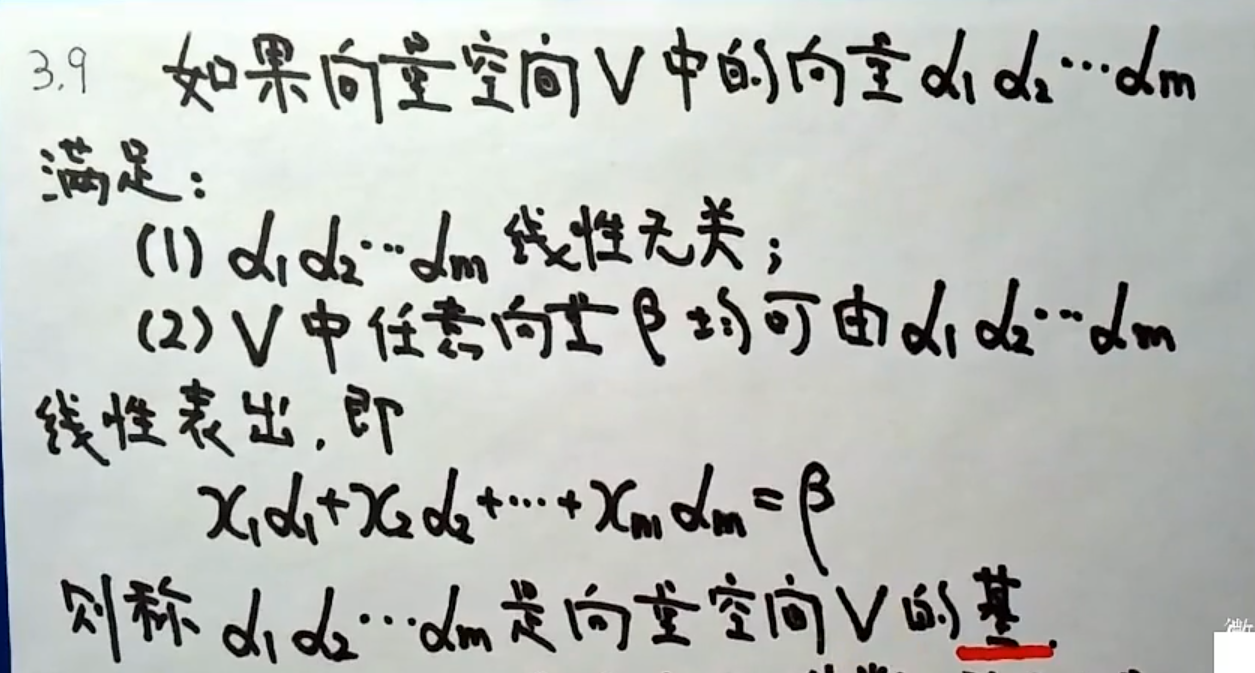 3.9 如果向量空间V中的向量α₁α₂⋯αₘ
满足:
(1) α₁α₂⋯αₘ线性无关;
(2) V中任意向量β均可由α₁α₂⋯αₘ
线性表出,即
x₁α₁+x₂α₂+⋯+xₘαₘ=β
则称α₁α₂⋯αₘ是向量空间V的基.
微